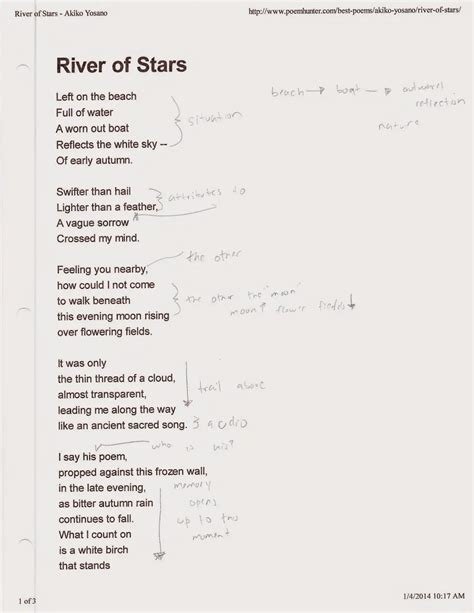 River of Stars - Akiko Yosano
http://www.poemhunter.com/best-poems/akiko-yosano/river-of-stars/
River of Stars
Left on the beach
Full of water
A worn out boat
Reflects the white sky --
Of early autumn.
situation
beach → boat → outward
reflection
nature
Swifter than hail
Lighter than a feather,
A vague sorrow
Crossed my mind.
attributes to
Feeling you nearby,
how could I not come
to walk beneath
this evening moon rising
over flowering fields.
the other
the other the "moon"
moon? flower fields
It was only
the thin thread of a cloud,
almost transparent,
leading me along the way
like an ancient sacred song.
trail above
I say his poem,
propped against this frozen wall,
in the late evening,
as bitter autumn rain
continues to fall.
What I count on
is a white birch
that stands
who is his?
memory
opens
up to this
moment
1 of 3
1/4/2014 10:17 AM